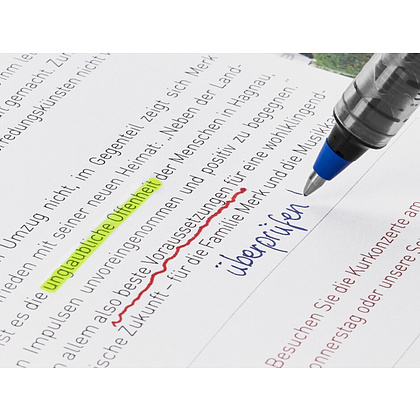 gemacht. Zu
redungskünsten nicht
Umzug nicht, im Gegenteil zeigt sich Merk
rieden mit seiner neuen Heimat: „Neben der Land-
ist es die unglaubliche Offenheit der Menschen in Hagnau,
n Impulsen unvoreingenommen und positiv zu begegnen.“
allem also beste Voraussetzungen für eine wohlklingend-
ische Zukunft - für die Familie Merk und die Musikka
überprüfen!
Besuchen Sie die Kurkonzerte am
onnerstag oder unsere